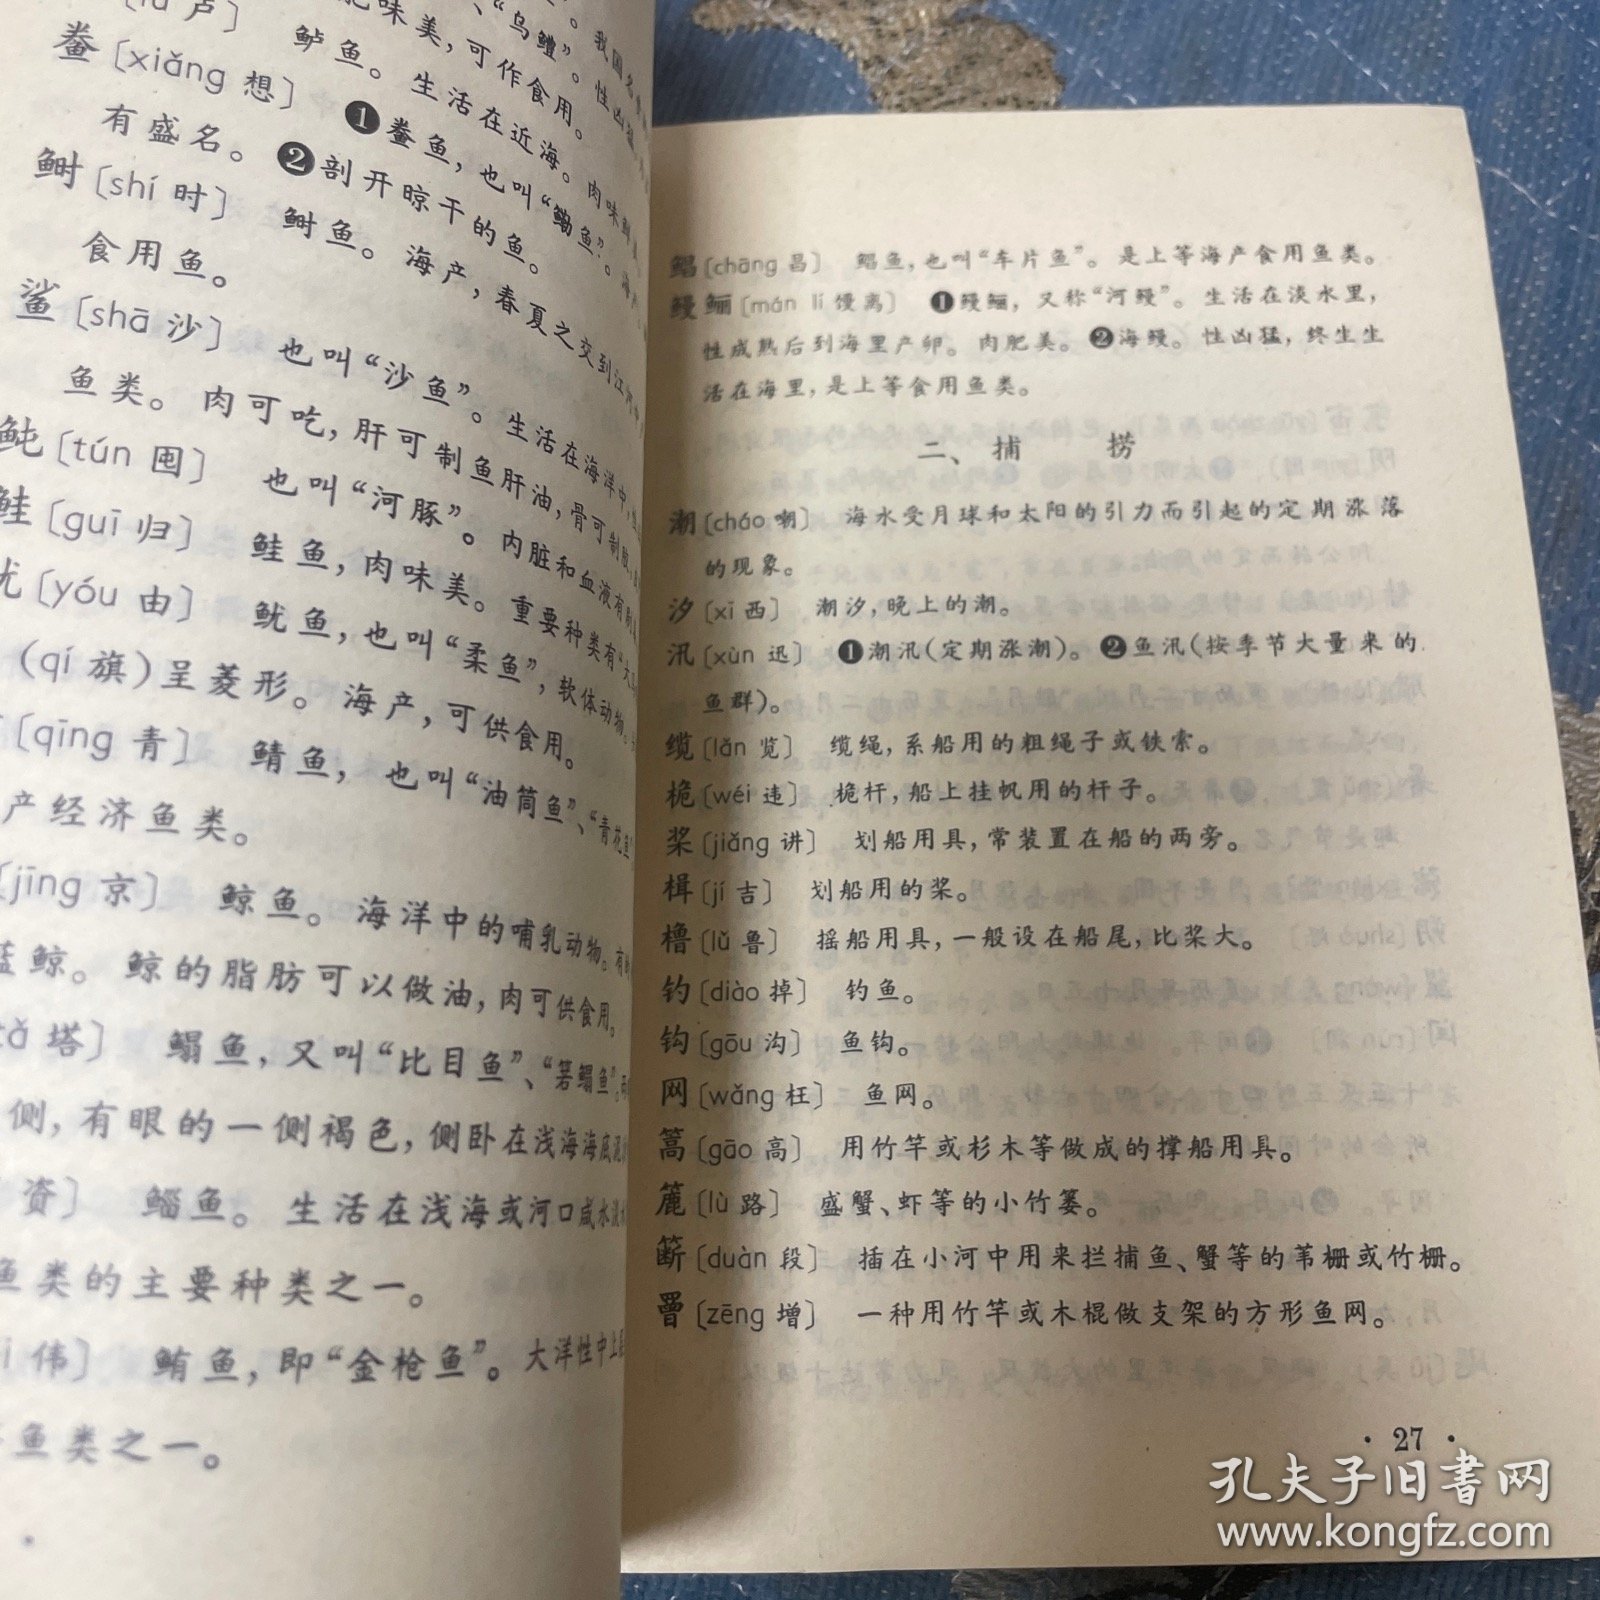 鲞〔xiǎng 想〕 ❶鲞鱼，也叫“鳓鱼”。
有盛名。❷剖开晾干的鱼。
鲥〔shí 时〕 鲥鱼。海产，春夏之交到江河中
食用鱼。
鲨〔shā 沙〕 也叫“沙鱼”。生活在海洋中，
鱼类。肉可吃，肝可制鱼肝油，骨可制胶，
鲀〔tún 囤〕 也叫“河豚”。内脏和血液有剧
鲑〔guī 归〕 鲑鱼，肉味美。重要种类有“大马
鱿〔yóu 由〕 鱿鱼，也叫“柔鱼”，软体动物。
（qí 旗）呈菱形。海产，可供食用。
〔qīng 青〕 鲭鱼，也叫“油筒鱼”、“青花鱼”
产经济鱼类。
〔jīng 京〕 鲸鱼。海洋中的哺乳动物。有
蓝鲸。鲸的脂肪可以做油，肉可供食用。
tǎ 塔〕 鳎鱼，又叫“比目鱼”、“箬鳎鱼”。
侧，有眼的一侧褐色，侧卧在浅海海底泥
资〕 鲻鱼。生活在浅海或河口咸水淡
鱼类的主要种类之一。
i 伟〕 鲔鱼，即“金枪鱼”。大洋性中上层
鱼类之一。
鲳〔chāng 昌〕 鲳鱼，也叫“车片鱼”。是上等海产食用鱼类。
鳗鲡〔mán lí 馒离〕 ❶鳗鲡，又称“河鳗”。生活在淡水里，
性成熟后到海里产卵。肉肥美。❷海鳗。性凶猛，终生生
活在海里，是上等食用鱼类。
二、捕 捞
潮〔cháo 嘲〕 海水受月球和太阳的引力而引起的定期涨落
的现象。
汐〔xī 西〕 潮汐，晚上的潮。
汛〔xùn 迅〕 ❶潮汛（定期涨潮）。❷鱼汛（按季节大量来的
鱼群）。
缆〔lǎn 览〕 缆绳，系船用的粗绳子或铁索。
桅〔wéi 违〕 桅杆，船上挂帆用的杆子。
桨〔jiǎng 讲〕 划船用具，常装置在船的两旁。
楫〔jí 吉〕 划船用的桨。
橹〔lǔ 鲁〕 摇船用具，一般设在船尾，比桨大。
钓〔diào 掉〕 钓鱼。
钩〔gōu 沟〕 鱼钩。
网〔wǎng 枉〕 鱼网。
篙〔gāo 高〕 用竹竿或杉木等做成的撑船用具。
簏〔lù 路〕 盛蟹、虾等的小竹篓。
簖〔duàn 段〕 插在小河中用来拦捕鱼、蟹等的苇栅或竹栅。
罾〔zēng 增〕 一种用竹竿或木棍做支架的方形鱼网。
· 27 ·
孔夫子旧书网
www.kongfz.com